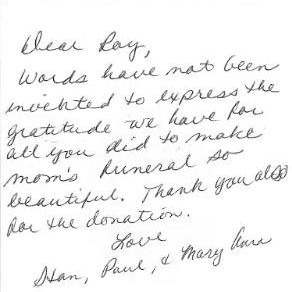 Dear Ray,
Words have not been
invented to express the
gratitude we have for
all you did to make
mom's funeral so
beautiful. Thank you also
for the donation.
Love
Stan, Paul, & Mary Ann